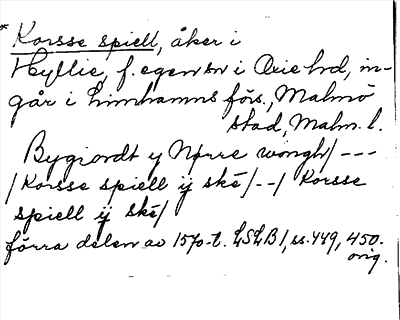 * Korsse spiell, åker i
Hyllie, f. egen sn i Oxie hd, in-
går i Limhamns förs., Malmö
stad, Malm. l.
Bygiordt y Nørre wongh/ ---
/ Korsse spiell ij ské /--/ Korsse
spiell ij ské/
förra delen av 1570-t. LSLB 1, ss. 449, 450.
orig.